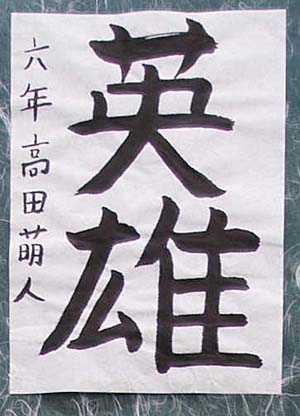 英雄
六年高田萌人